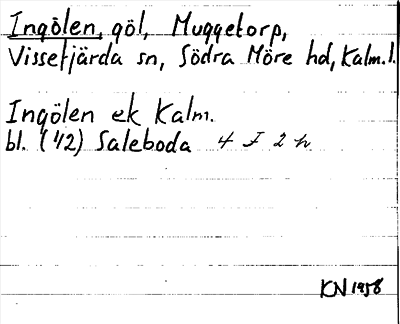 Ingölen, göl, Muggetorp,
Vissefjärda sn, Södra Möre hd, Kalm. l.
Ingölen ek Kalm.
bl. (1/2) Saleboda 4 F 2 h
KN 1958